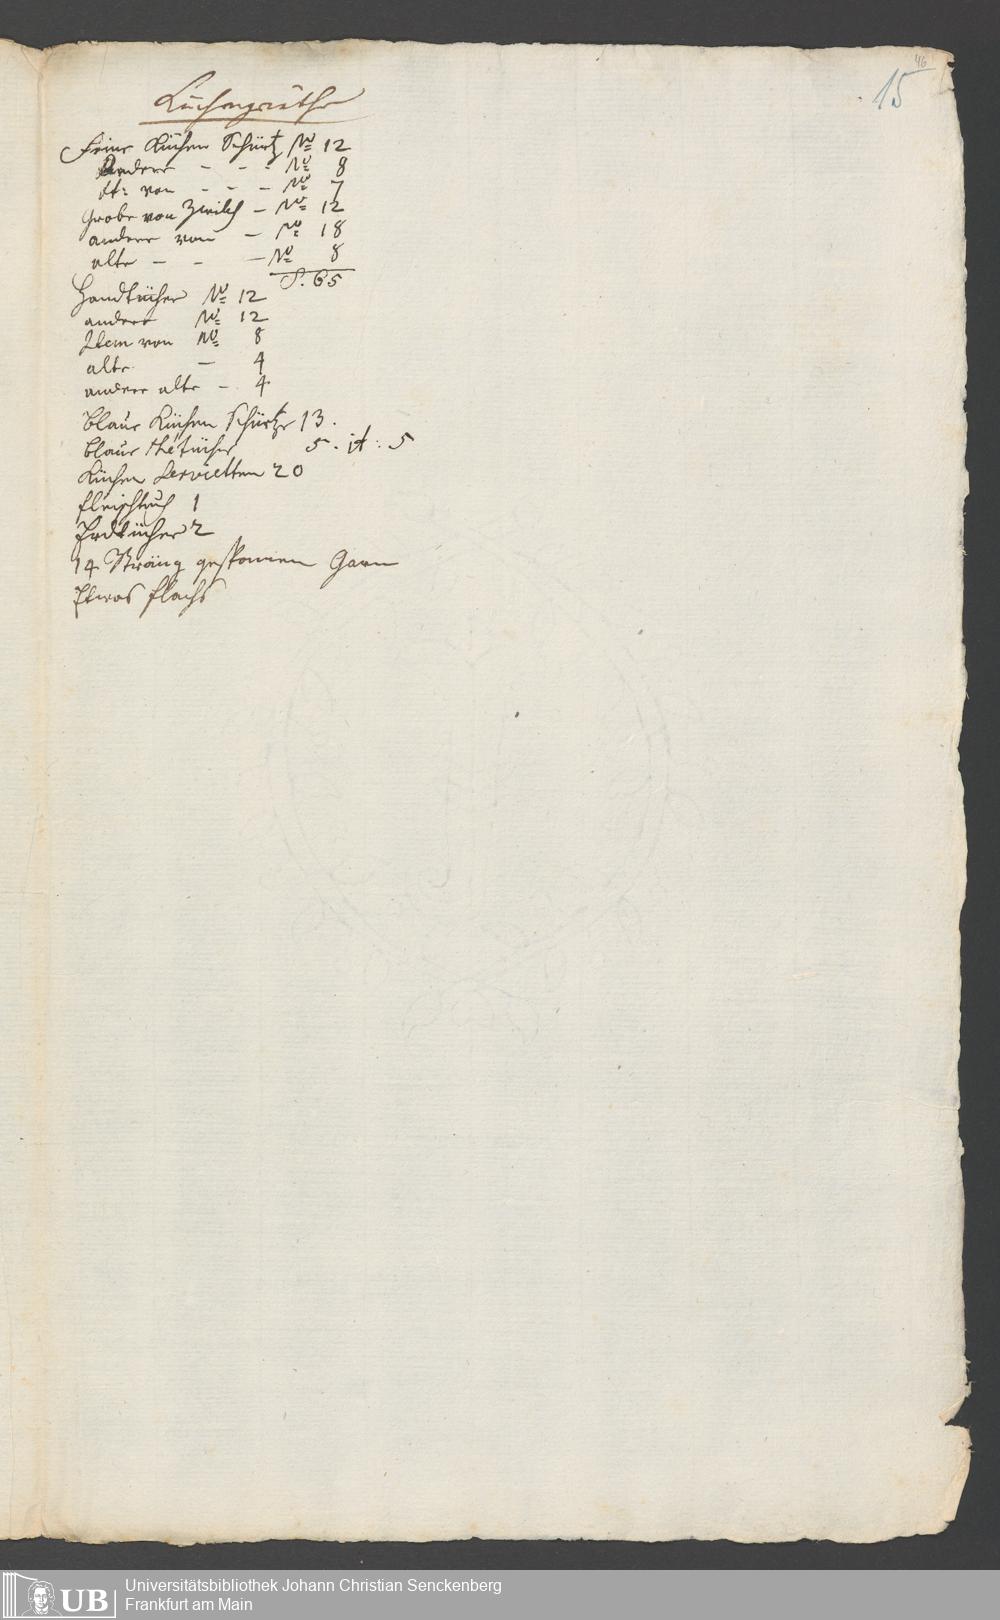 46
15
Küchengeräthe
Feine Küchen Schürtz No 12
Andere - - - No 8
It: von - - - No 7
Grobe von Zwilch - No 12
andere von - No 18
alte - - - No 8
S. 65
Handtücher No 12
andere No 12
Item von No 8
alte - 4
andere alte - 4
blaue Küchen Schürtze 13.
blaue thetücher 5. it: 5
Küchen Servietten 20
fleischtuch 1
Erdtücher 2
14 Sträng gesponnen Garn
Etwas flachs
UB
Universitätsbibliothek Johann Christian Senckenberg
Frankfurt am Main